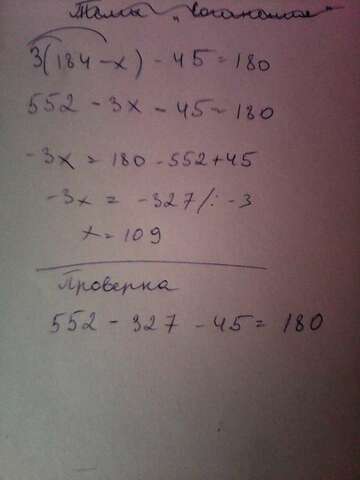 3(184-x) - 45 = 180
552 - 3x - 45 = 180
-3x = 180 - 552 + 45
-3x = -327 /: -3
x = 109
Проверка
552 - 327 - 45 = 180